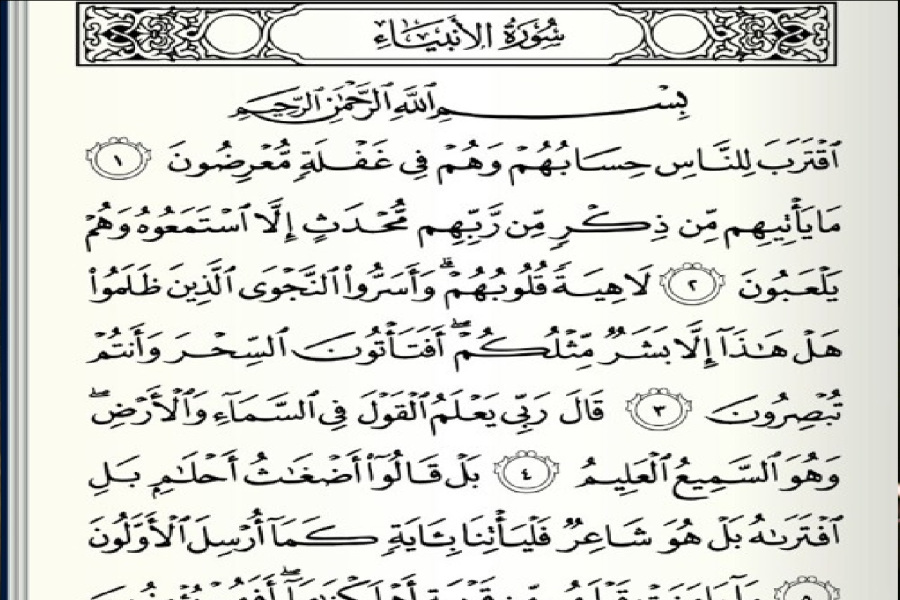 سُورَةُ الأَنبِيَاءِ
بِسْمِ ٱللَّهِ ٱلرَّحْمَٰنِ ٱلرَّحِيمِ
ٱقْتَرَبَ لِلنَّاسِ حِسَابُهُمْ وَهُمْ فِى غَفْلَةٍ مُّعْرِضُونَ ١
مَا يَأْتِيهِم مِّن ذِكْرٍ مِّن رَّبِّهِم مُّحْدَثٍ إِلَّا ٱسْتَمَعُوهُ وَهُمْ
يَلْعَبُونَ ٢ لَاهِيَةً قُلُوبُهُمْ ۗ وَأَسَرُّوا۟ ٱلنَّجْوَى ٱلَّذِينَ ظَلَمُوا۟
هَلْ هَٰذَآ إِلَّا بَشَرٌ مِّثْلُكُمْ ۖ أَفَتَأْتُونَ ٱلسِّحْرَ وَأَنتُمْ
تُبْصِرُونَ ٣ قَالَ رَبِّى يَعْلَمُ ٱلْقَوْلَ فِى ٱلسَّمَآءِ وَٱلْأَرْضِ ۖ
وَهُوَ ٱلسَّمِيعُ ٱلْعَلِيمُ ٤ بَلْ قَالُوٓا۟ أَضْغَٰثُ أَحْلَٰمٍۭ بَلِ
ٱفْتَرَىٰهُ بَلْ هُوَ شَاعِرٌ فَلْيَأْتِنَا بِـَٔايَةٍ كَمَآ أُرْسِلَ ٱلْأَوَّلُونَ